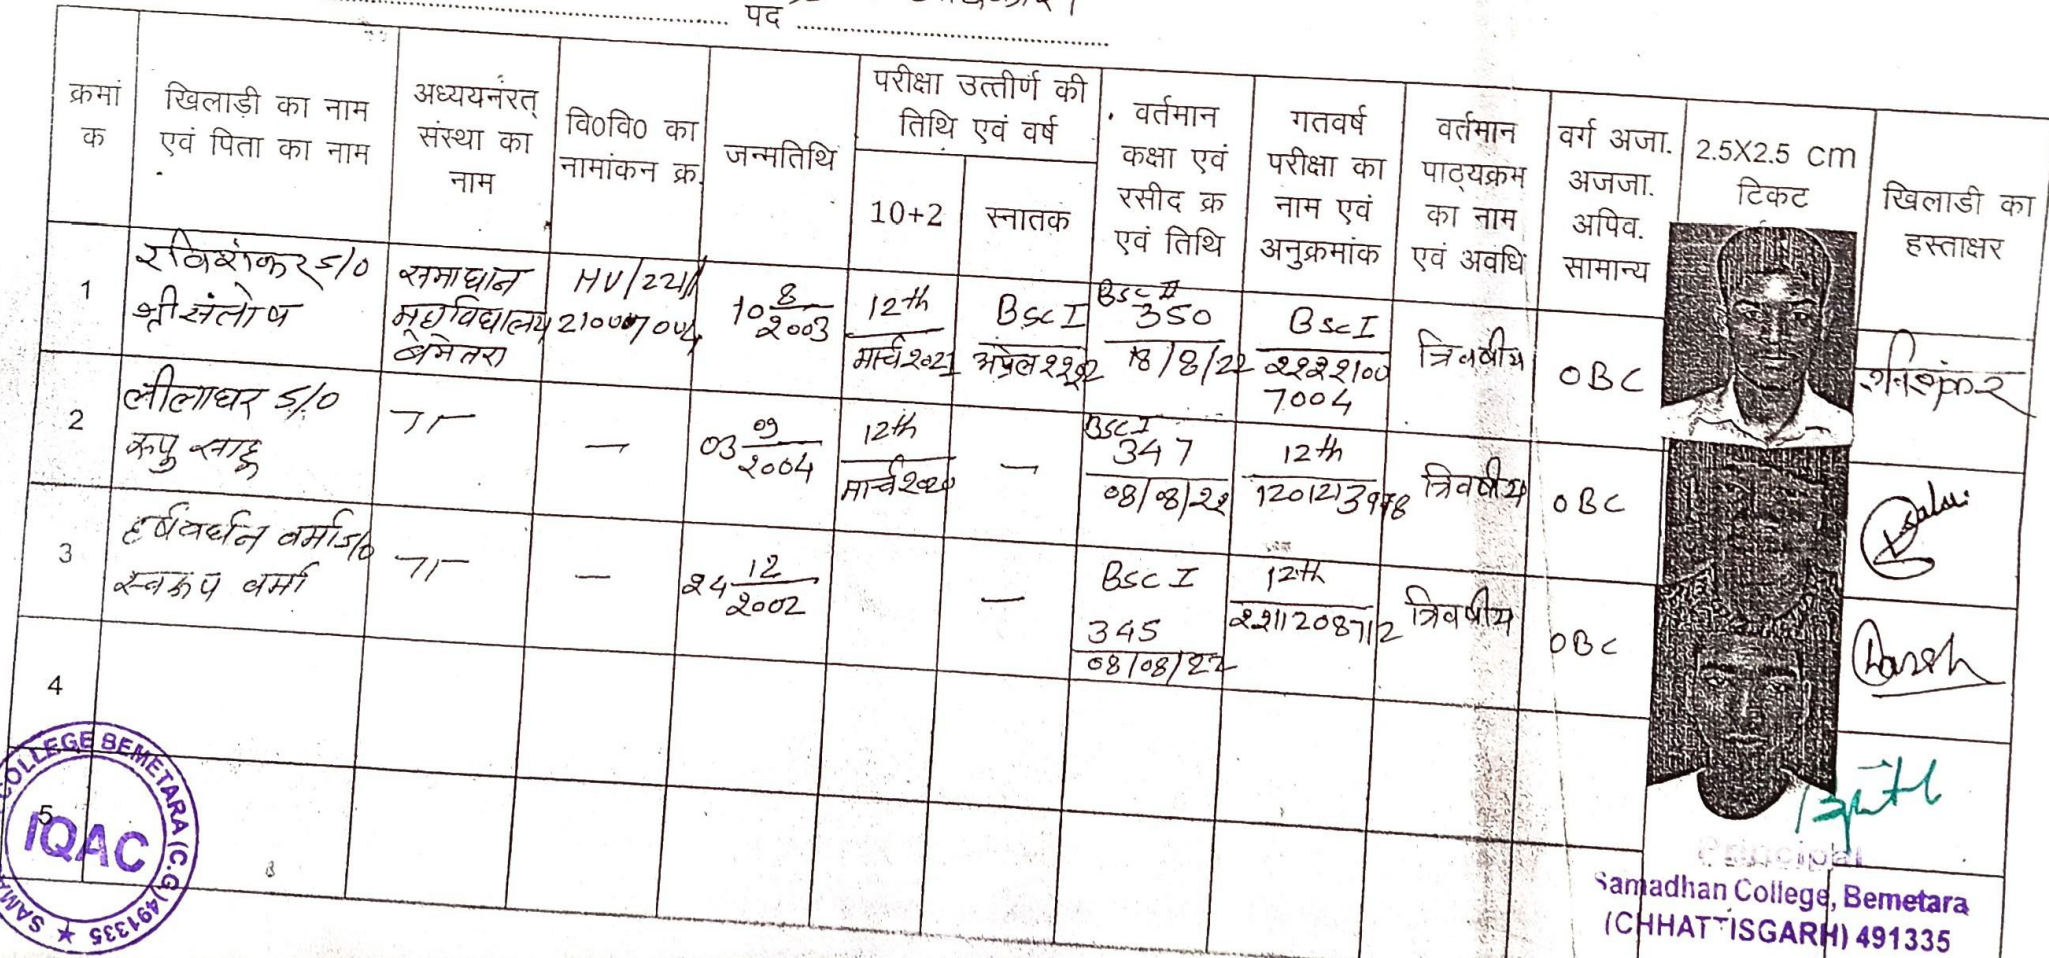 पद
क्रमां
क
खिलाड़ी का नाम
एवं पिता का नाम
अध्ययनंरत्
संस्था का
नाम
वि0वि0 का
नामांकन क्र.
जन्मतिथि
परीक्षा उत्तीर्ण की
तिथि एवं वर्ष
10+2
स्नातक
वर्तमान
कक्षा एवं
रसीद क्र
एवं तिथि
गतवर्ष
परीक्षा का
नाम एवं
अनुक्रमांक
वर्तमान
पाठ्यक्रम
का नाम
एवं अवधि
वर्ग अजा.
अजजा.
अपिव.
सामान्य
2.5X2.5 cm
टिकट
खिलाडी का
हस्ताक्षर
1
रविशंकर S/O
श्री संतोष
समाधान
महाविद्यालय
बेमेतरा
HV/221/
10 8
2003
12th
मार्च 2021
BSc I
अप्रेल
BSC II
350
18/8/22
BSc I
2222100
7004
त्रिवर्षीय
OBC
रविशंकर
2
लीलाधर S/O
साहू
03 09
2004
12th
मार्च 2020
BSC I
347
08/08/22
12th
त्रिवर्षीय
OBC
3
हर्षवर्धन वर्मा S/O
स्वरूप वर्मा
24 12
2002
BSC I
345
08/08/22
12th
2211208712
त्रिवर्षीय
OBC
4
5
COLLEGE BEMETARA (C.G.) 491335
IQAC
Principal
Samadhan College, Bemetara
(CHHATTISGARH) 491335